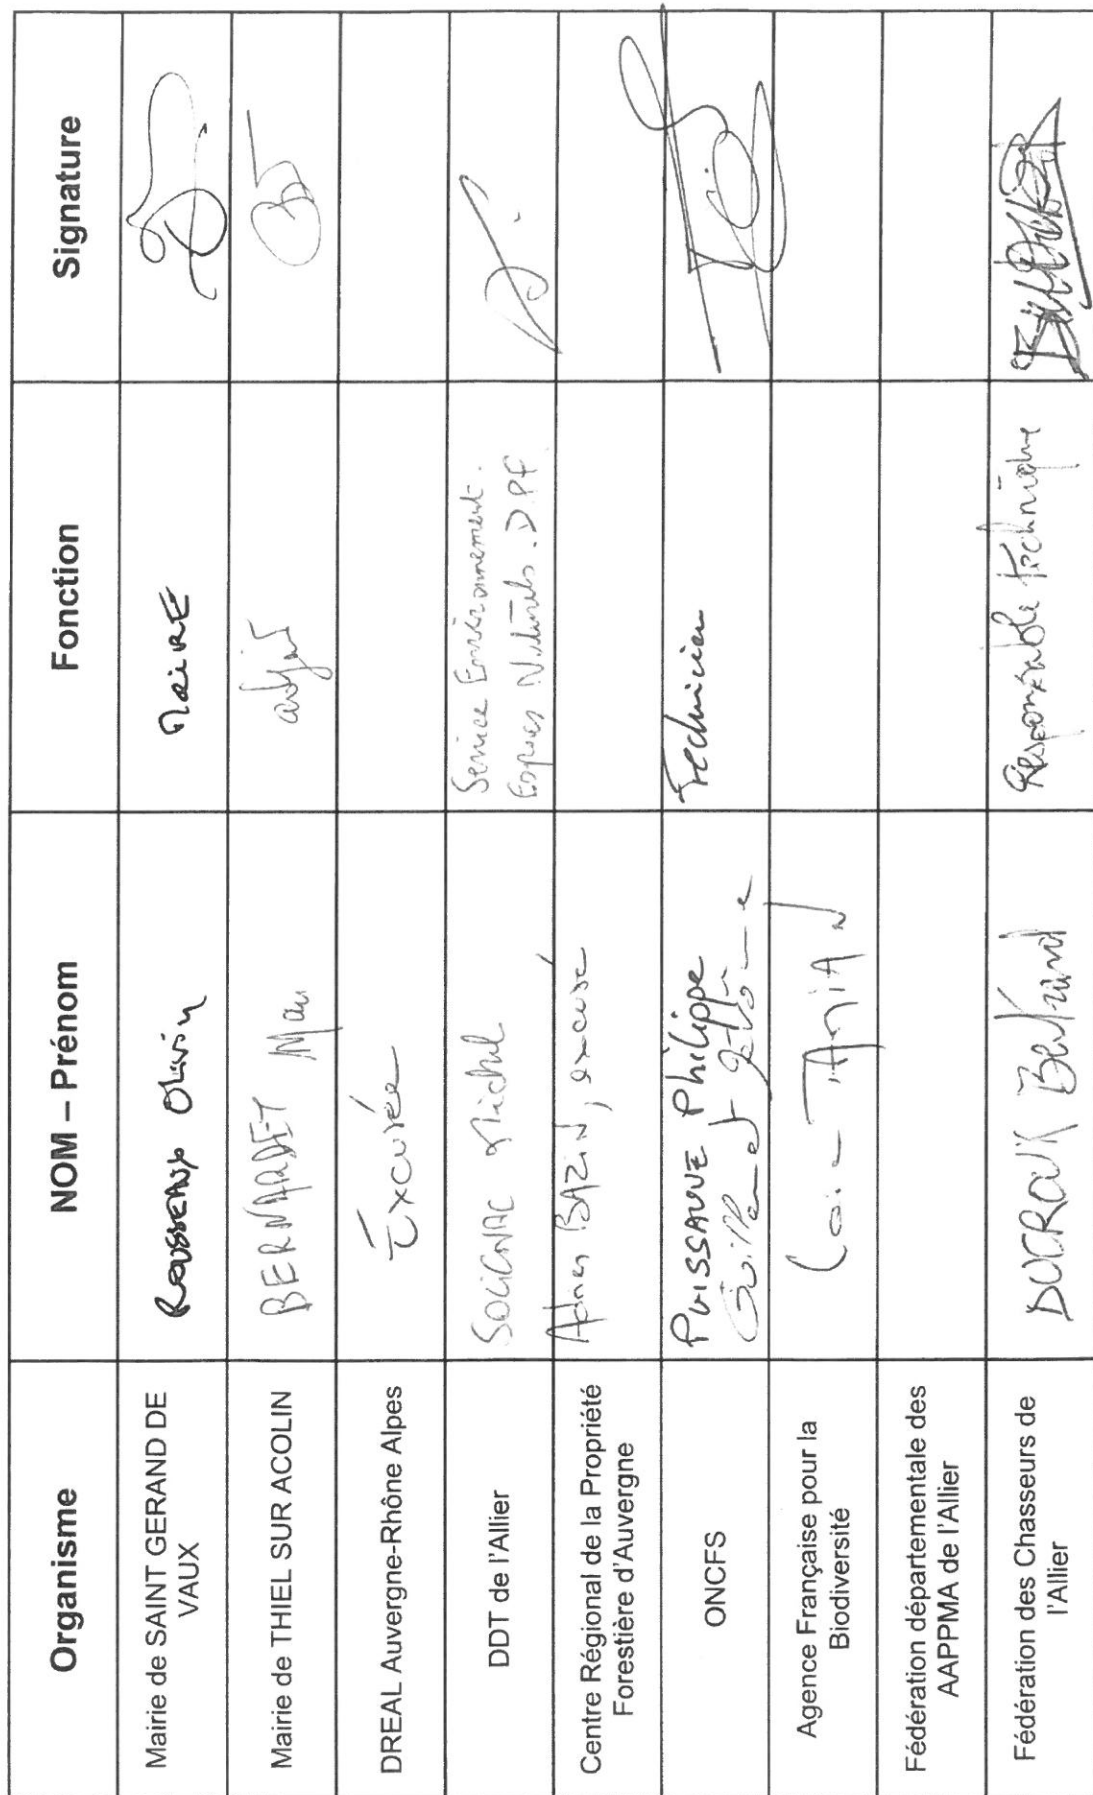 Organisme
NOM – Prénom
Fonction
Signature
Mairie de SAINT GERAND DE
VAUX
ROUSSEAUX Olivier
MaiRE
Mairie de THIEL SUR ACOLIN
BERNARDET Marc
adjoint
DREAL Auvergne-Rhône Alpes
Excusée
DDT de l'Allier
SOLIGNAC Michel
Service Environnement.
Espaces Naturels. DPF
Centre Régional de la Propriété
Forestière d'Auvergne
BAZiN, excusé
ONCFS
PUISSAUVE Philippe
Technicien
Agence Française pour la
Biodiversité
Fédération départementale des
AAPPMA de l'Allier
Fédération des Chasseurs de
l'Allier
DUCROUX Bertrand
Responsable technique